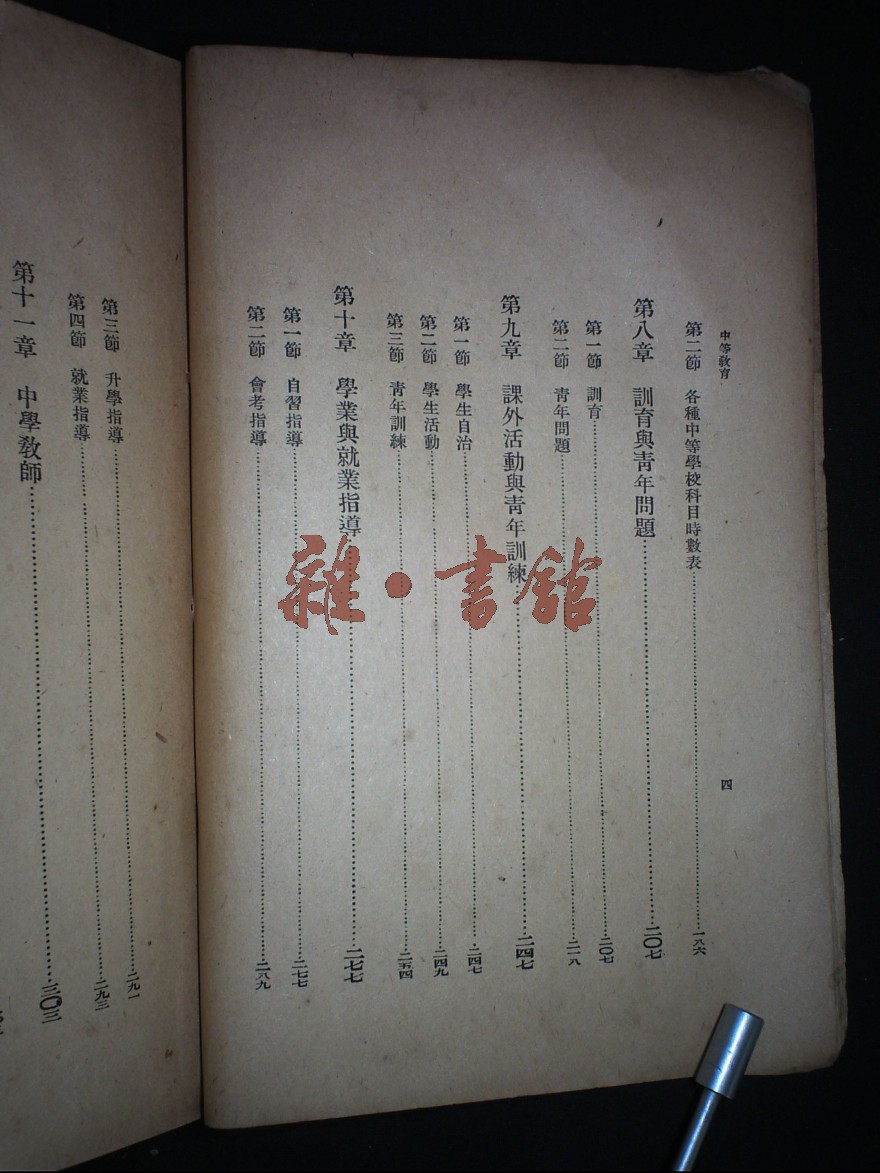 中等敎育
四
第二節 各種中等學校科目時數表……一八六
第八章 訓育與靑年問題……二〇七
第一節 訓育……二〇七
第二節 靑年問題……二一八
第九章 課外活動與靑年訓練……二四七
第一節 學生自治……二四七
第二節 學生活動……二四九
第三節 靑年訓練……二五四
第十章 學業與就業指導……二七七
第一節 自習指導……二七七
第二節 會考指導……二八九
第三節 升學指導……二九一
第四節 就業指導……二九三
第十一章 中學敎師……三〇三
雜·書館